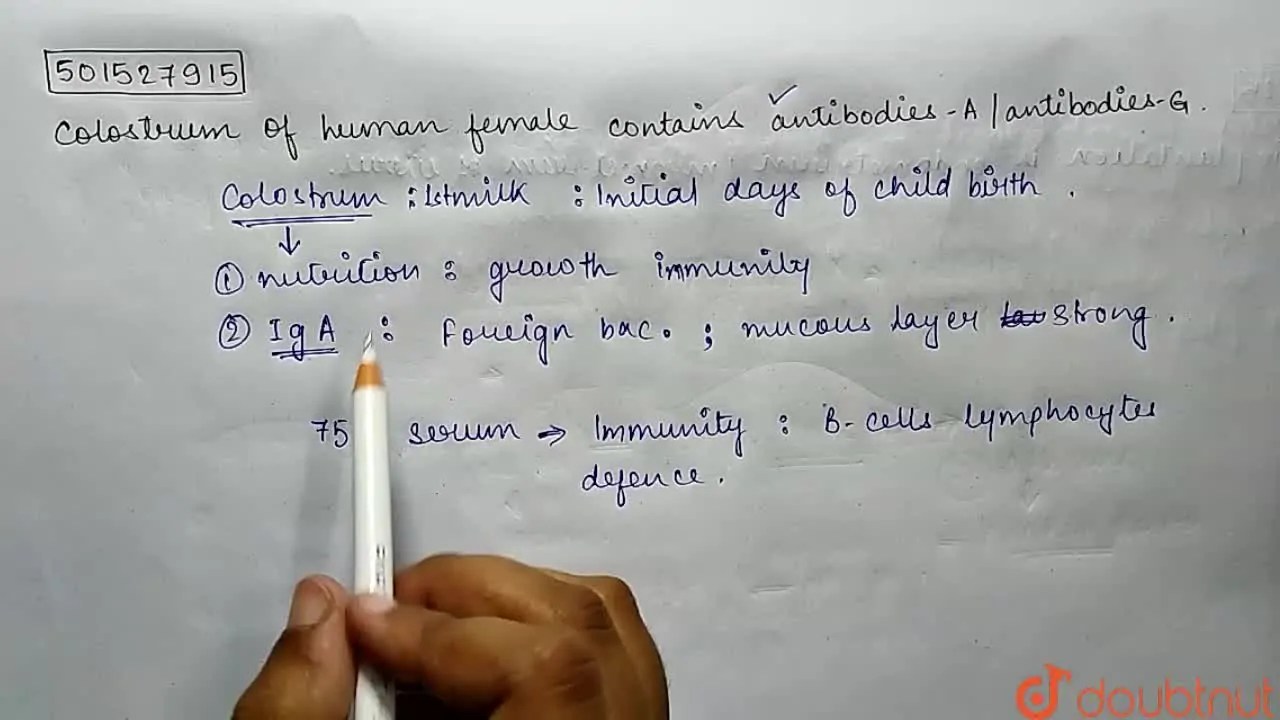 501527915
Colostrum of human female contains ✓antibodies-A / antibodies-G.
Colostrum : 1st milk : Initial days of child birth .
↓
① nutrition : growth immunity
② IgA : Foreign bac. ; mucous layer strong .
75 serum → Immunity : B-cells lymphocytes
defence .
doubtnut